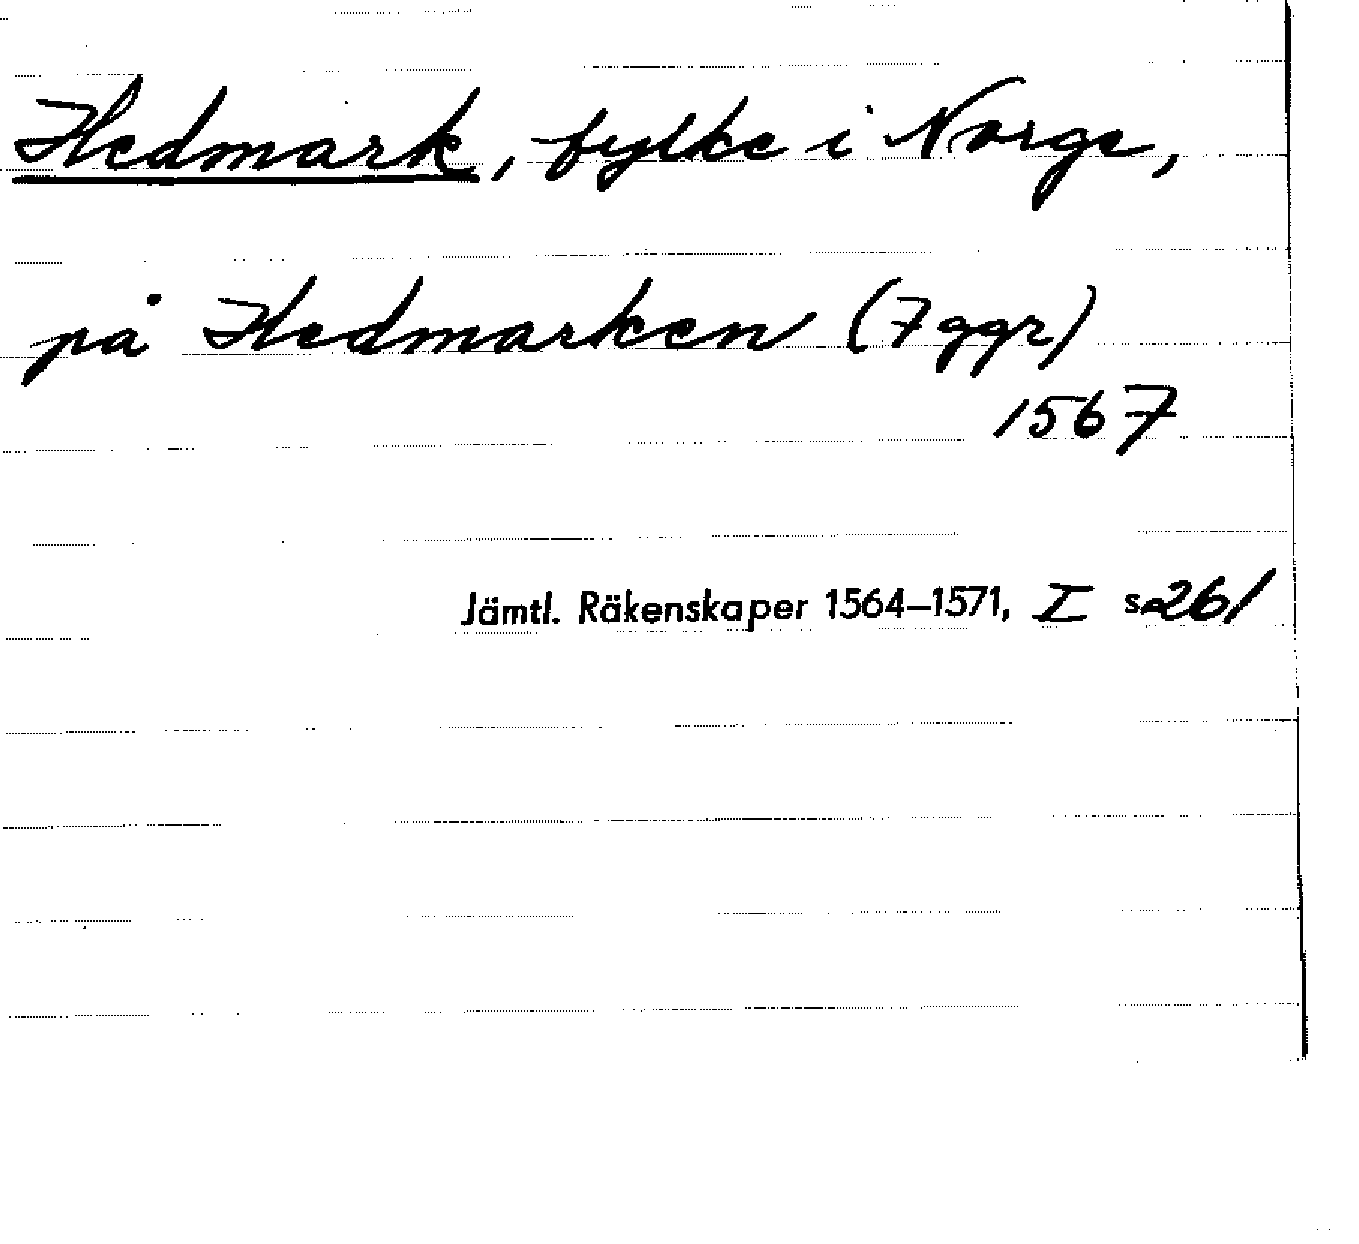 Hedmark, fylke i Norge,
på Hedmarken (7 ggr)
1567
Jämtl. Räkenskaper 1564–1571, I s. 261